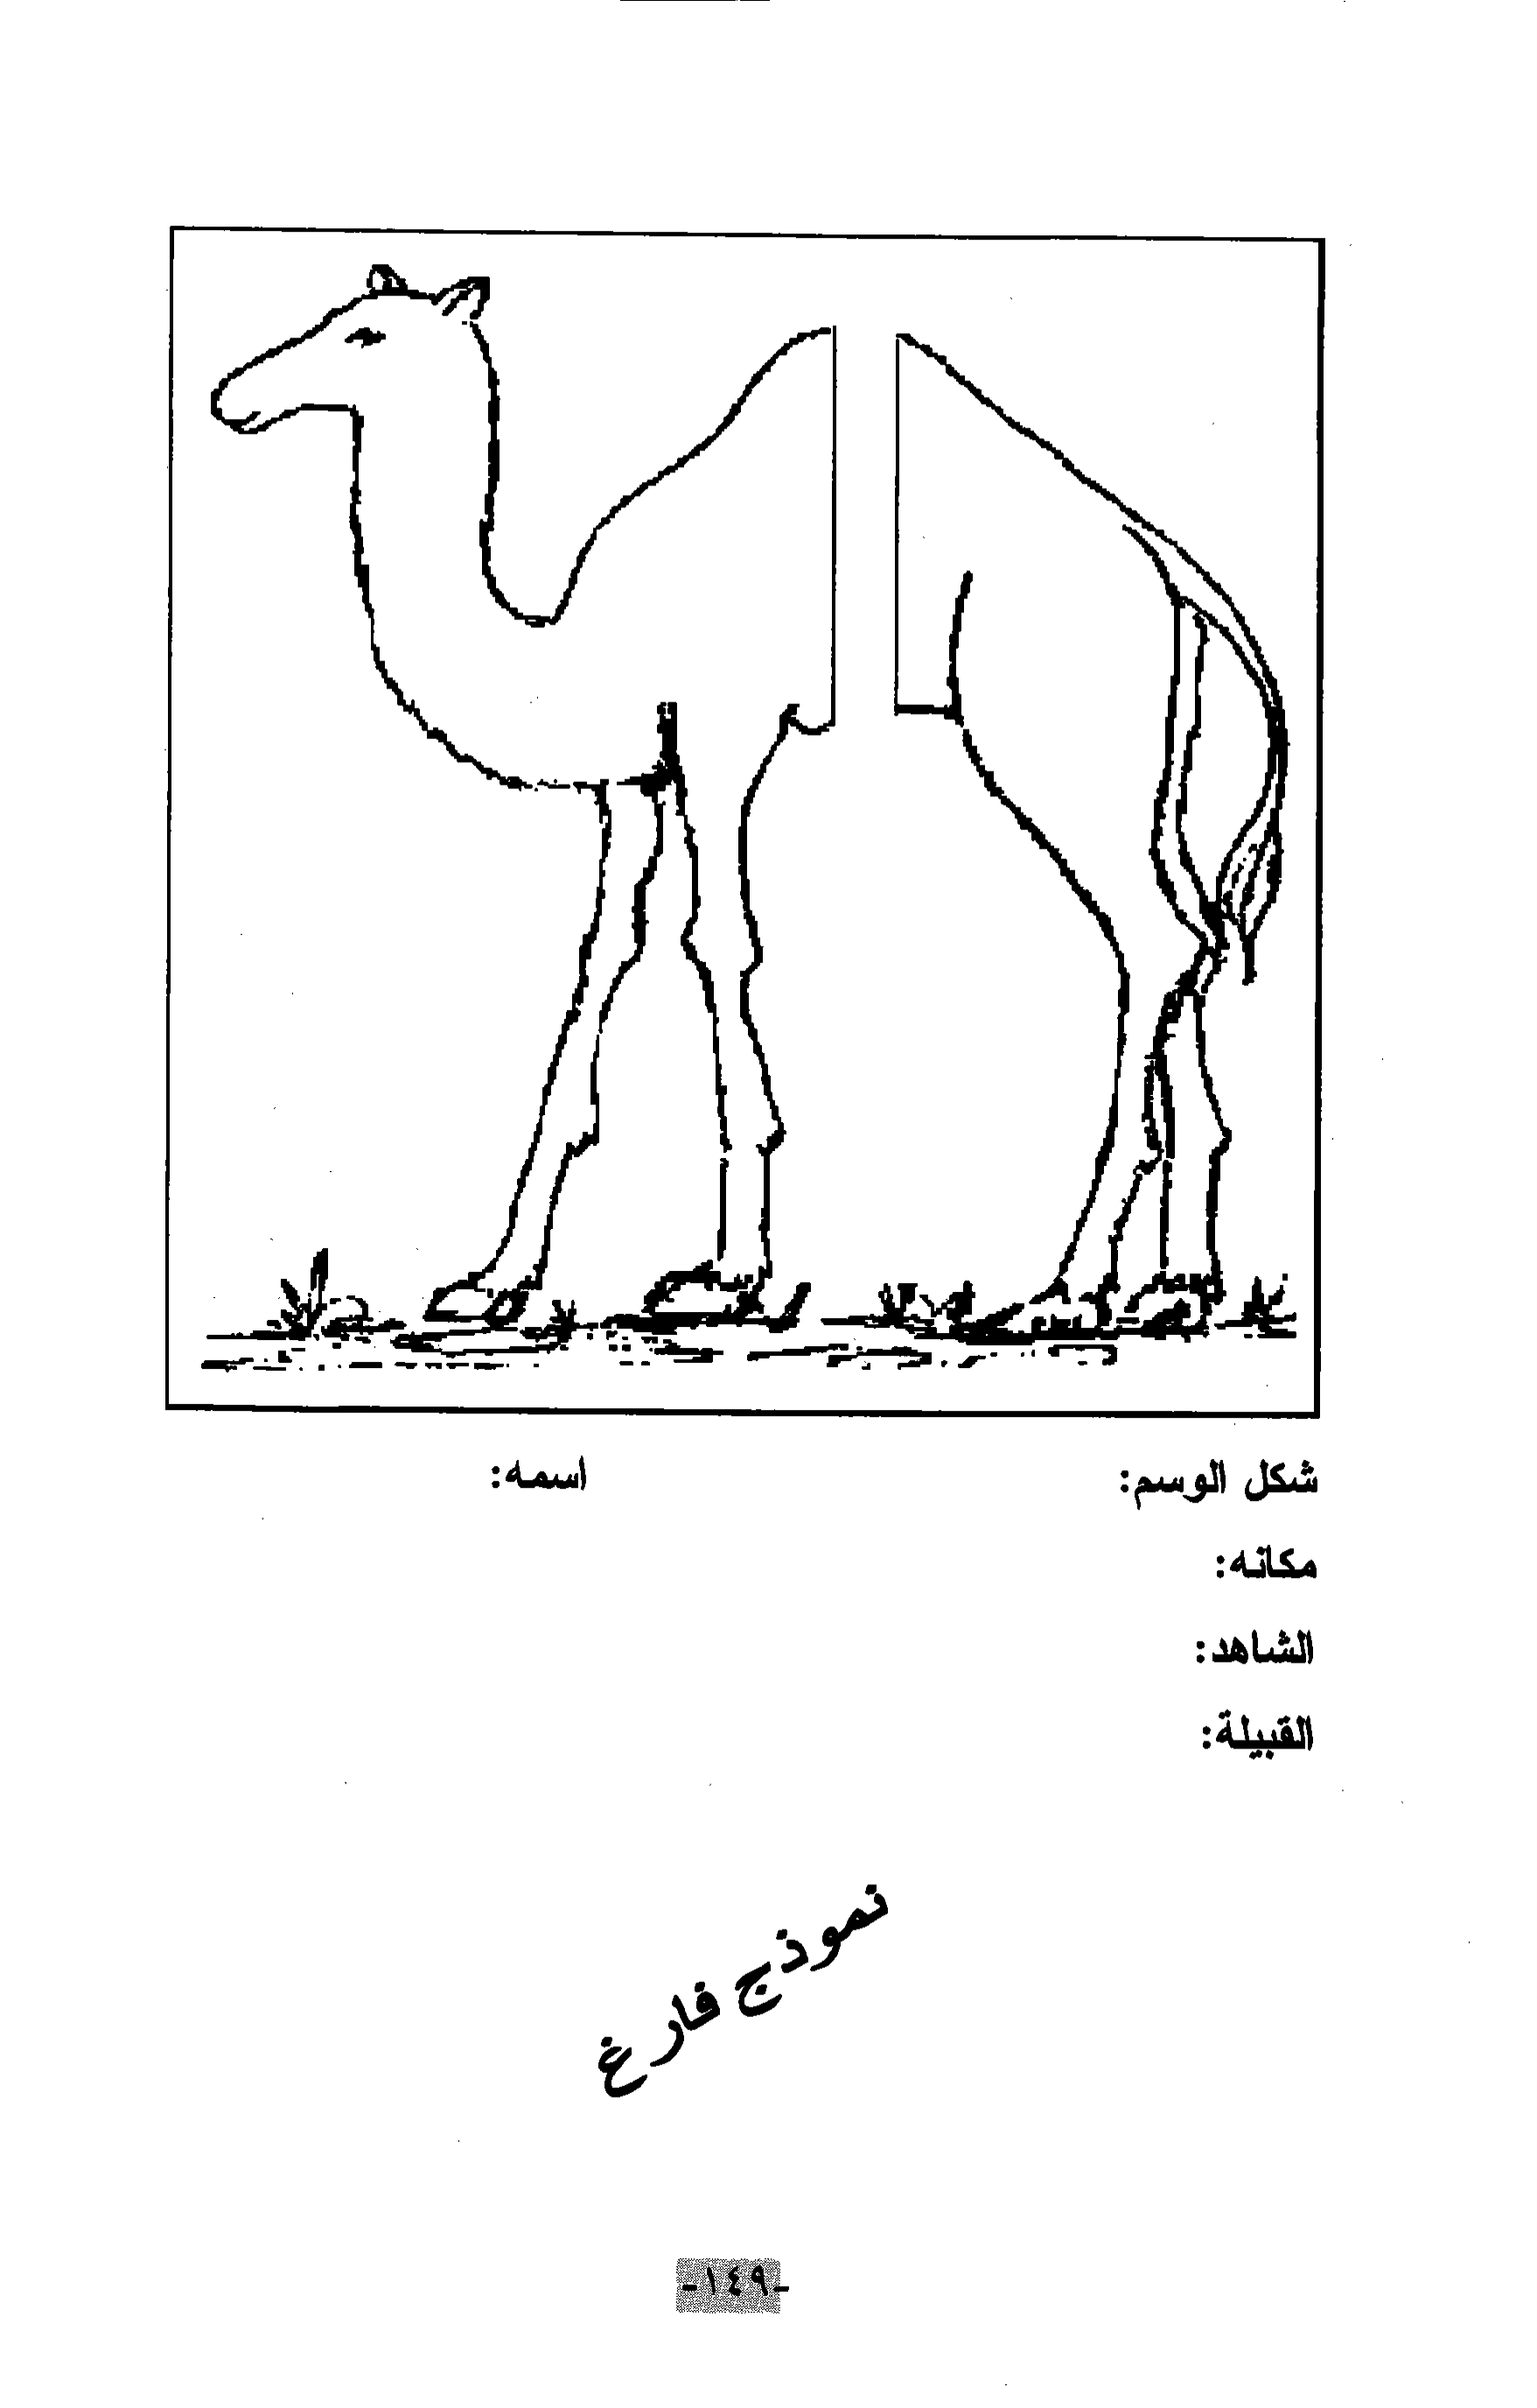 شكل الوسم: اسمه:
مكانه:
الشاهد:
القبيلة:
نموذج فارغ
-١٤٩-